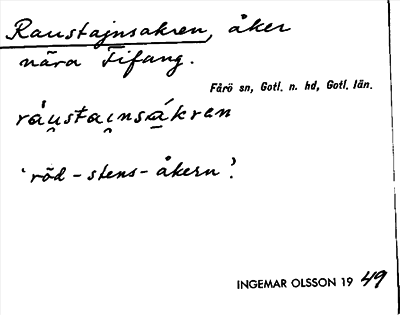 Raustajnsakren, åker
nära Fifang.
Fårö sn, Gotl. n. hd, Gotl. län.
ráu̯stai̯nsákren
'röd-stens-åkern'.
INGEMAR OLSSON 19 49